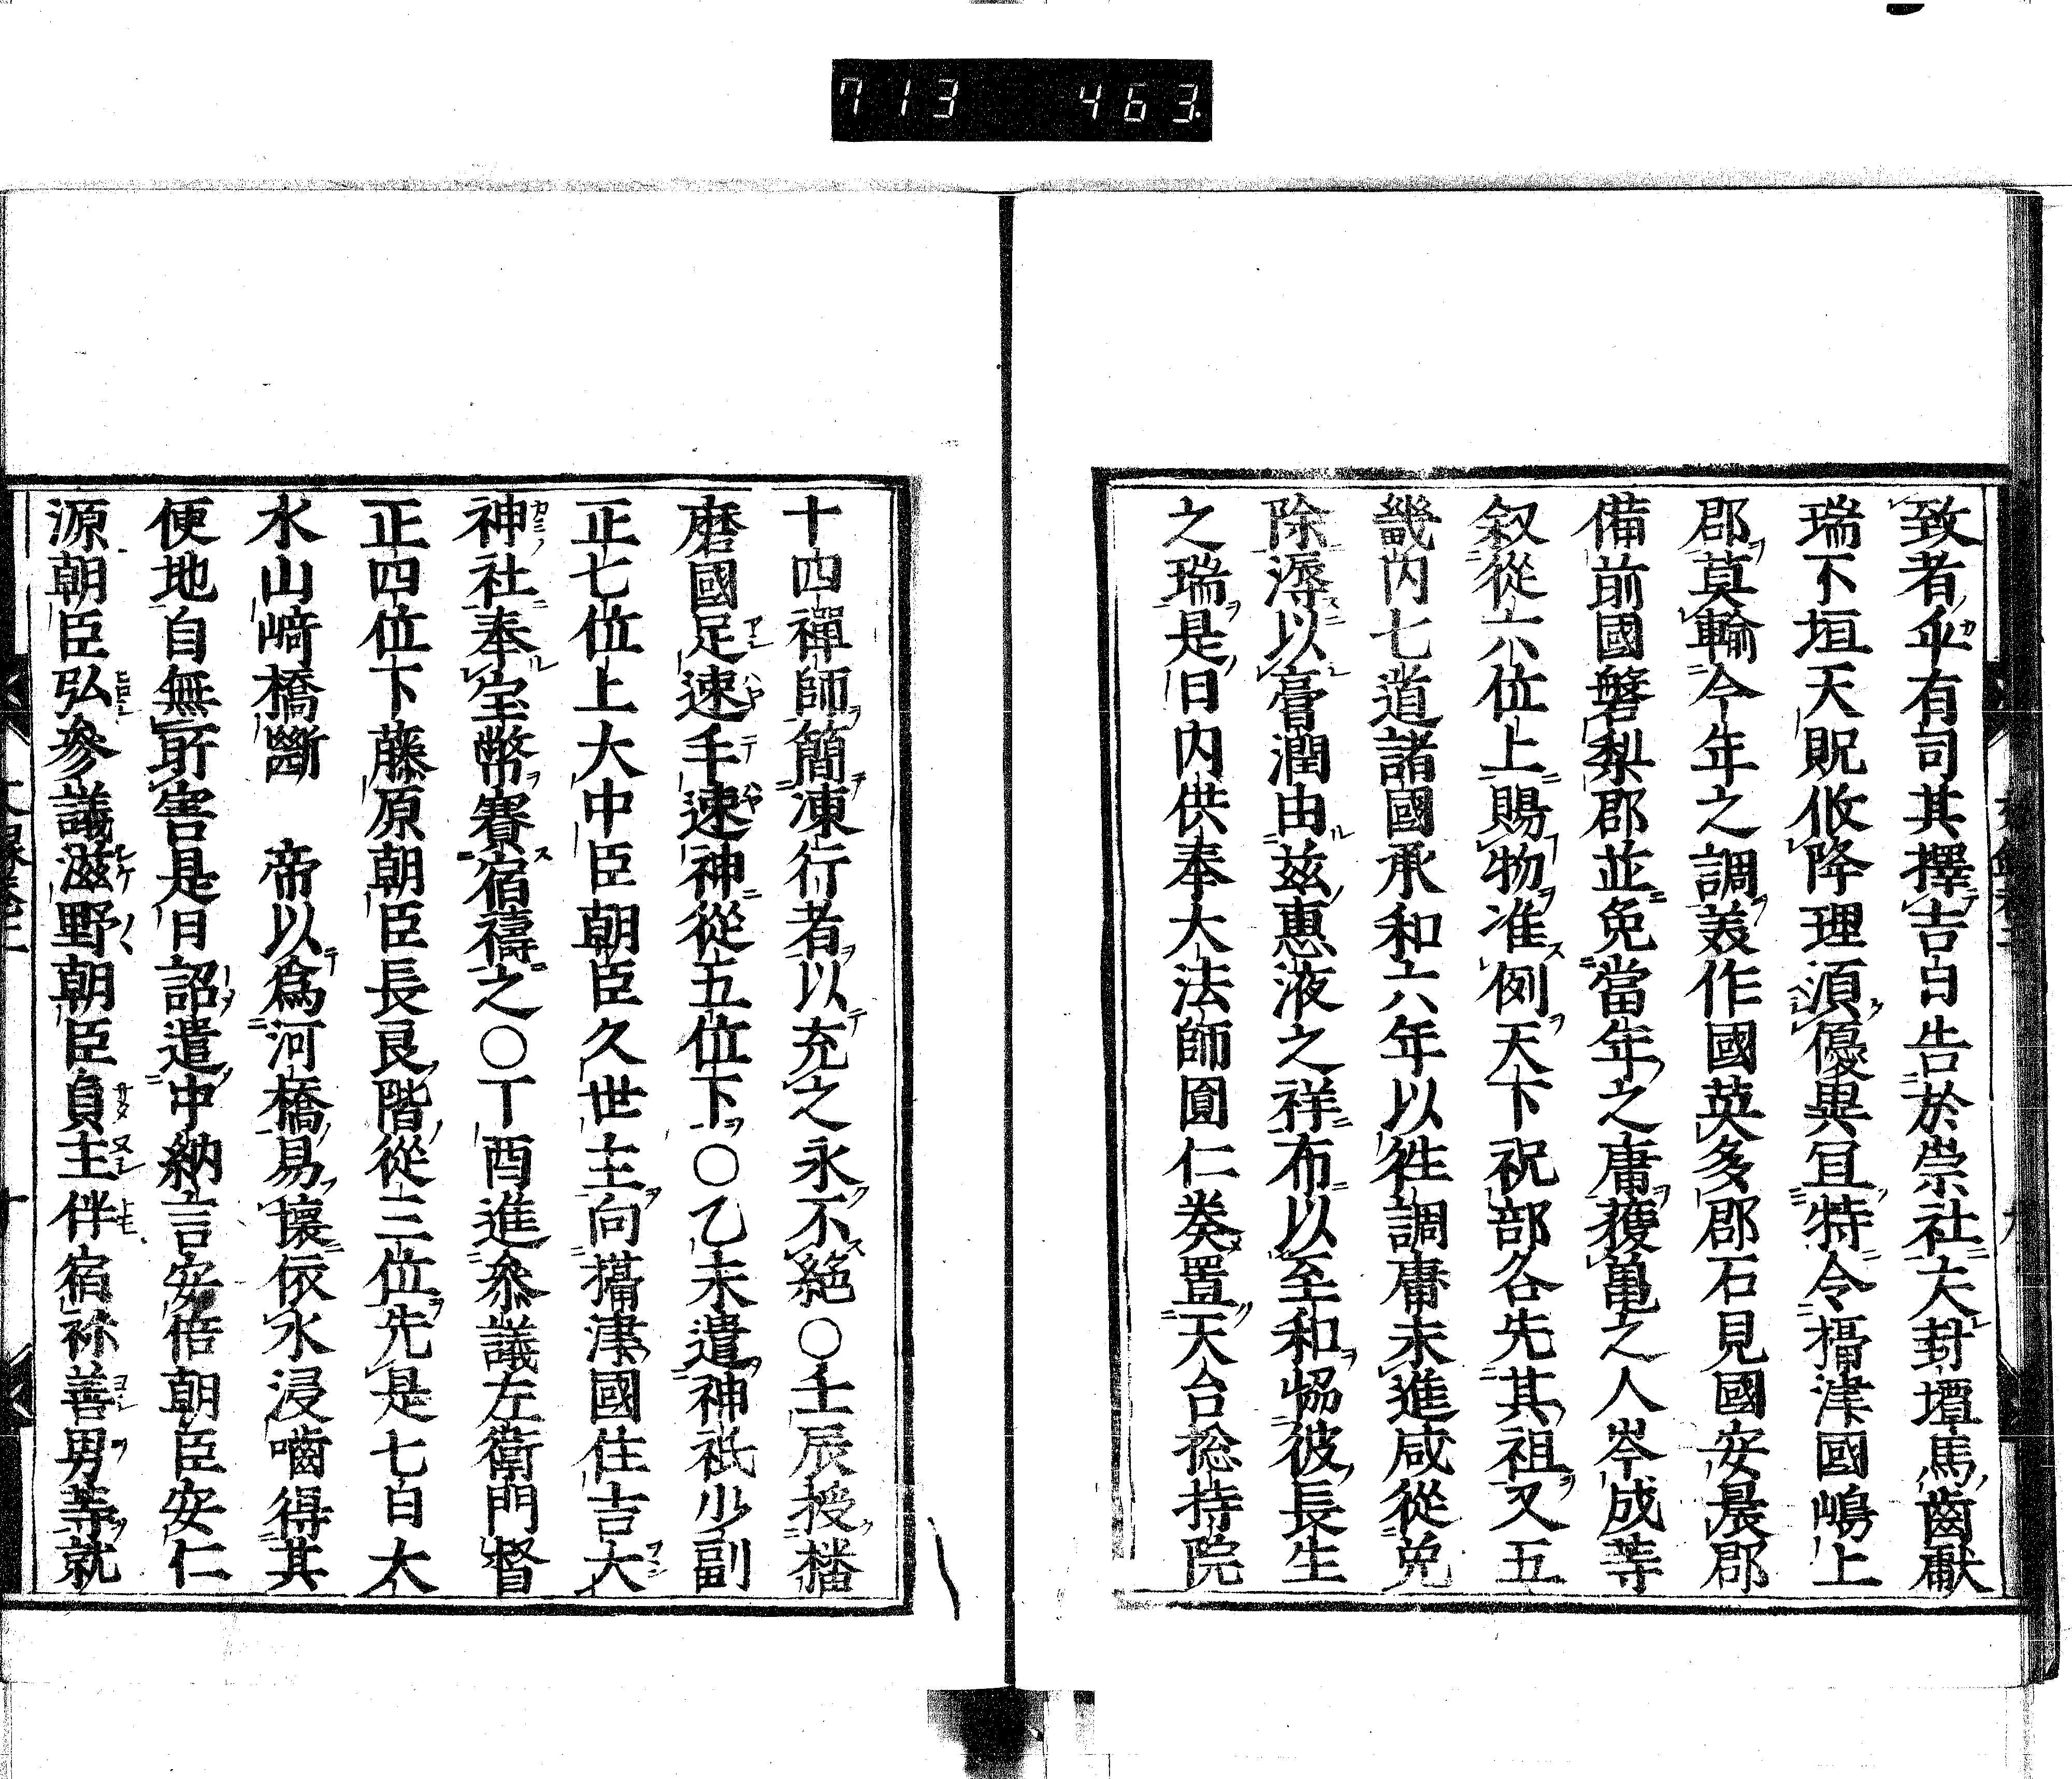 713 463
致者乎有司其擇吉日告於崇社大封壇馬齒獻
瑞不垣天貺攸降理須優異宜特令攝津國嶋上
郡莫輸今年之調美作國英多郡石見國安農郡
備前國磐梨郡並免當年之庸獲龜之人岑成等
叙從六位上賜物准例天下祝部各先其祖又五
畿內七道諸國承和六年以徃調庸未進咸從免
除濡以膏潤由兹惠液之祥布以至和協彼長生
之瑞是日內供奉大法師圓仁奏置天台惣持院
十四禪師簡凍行者以充之永不絕〇壬辰授播
磨國足速手速神從五位下〇乙未遣神祇少副
正七位上大中臣朝臣久世主向攝津國住吉大
神社奉宝幣賽宿禱之〇丁酉進參議左衛門督
正四位下藤原朝臣長良階從三位先是七日大
水山﨑橋斷 帝以爲河橋易壞依水浸嚙得其
便地自無所害是日詔遣中納言安倍朝臣安仁
源朝臣弘參議滋野朝臣貞主伴宿祢善男等就